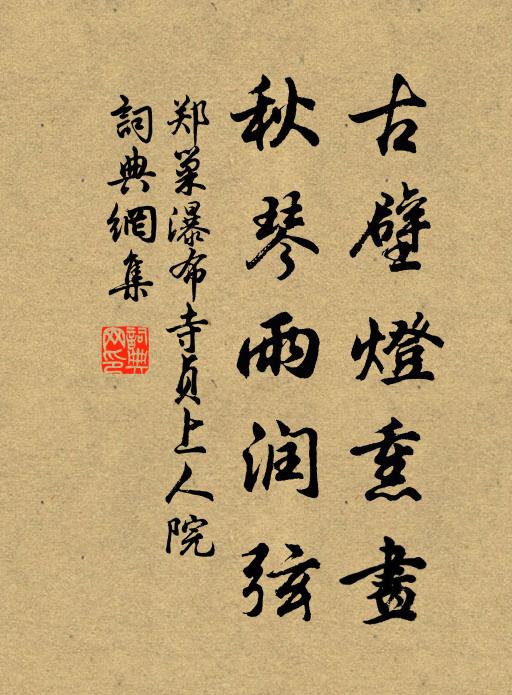 古壁燈熏畫
秋琴雨润弦
郑巢瀑布寺貞上人院
詞典網集
詞典網印